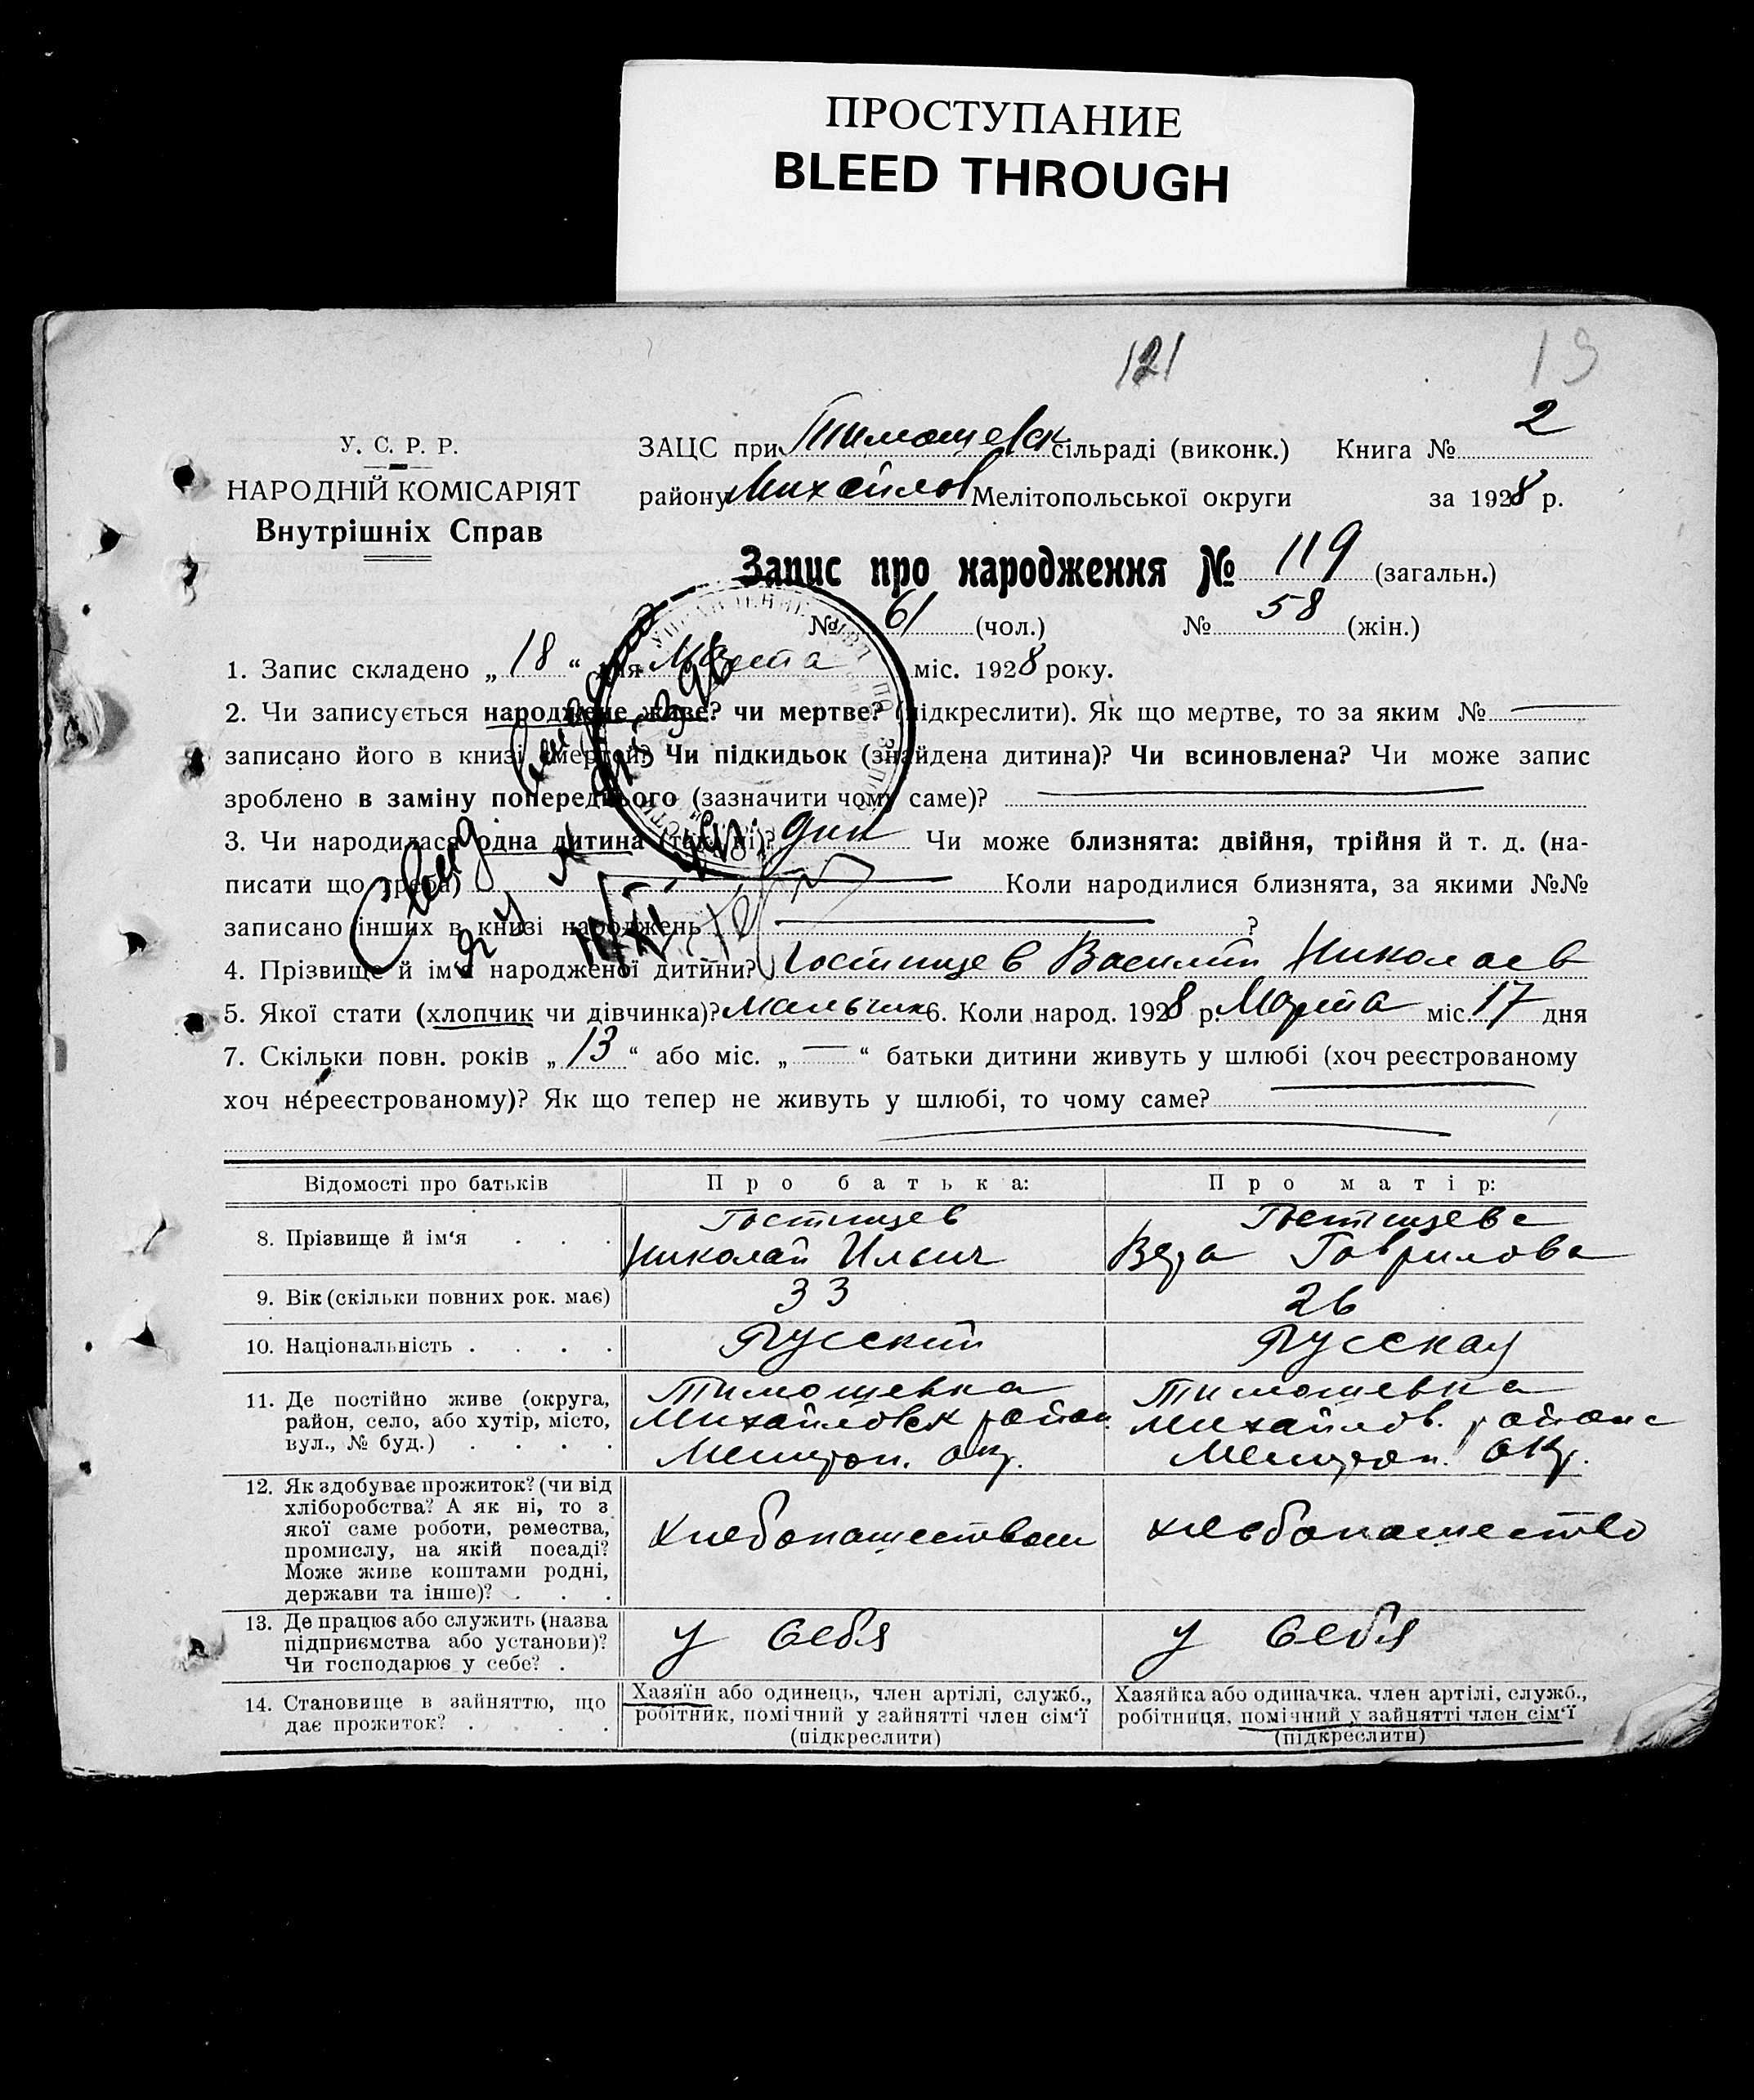 ПРОСТУПАНИЕ
BLEED THROUGH
121
19
У. С. Р. Р.
НАРОДНІЙ КОМІСАРІЯТ
Внутрішніх Справ
ЗАЦС при Тимошевск сільраді (виконк.) Книга № 2
району Михайлов Мелітопольської округи за 1928 р.
Запис про народження № 119 (загальн.)
№ 61 (чол.) № 58 (жін.)
1. Запис складено „ 18 “ дня Марта міс. 1928 року.
2. Чи записується народжене живе? чи мертве? (підкреслити). Як що мертве, то за яким №
записано його в книзі смертей? Чи підкидьок (знайдена дитина)? Чи всиновлена? Чи може запис
зроблено в заміну попереднього (зазначити чому саме)?
3. Чи народилася одна дитина (так, ні)? дин Чи може близнята: двійня, трійня й т. д. (на-
писати що треба) Коли народилися близнята, за якими №№
записано інших в книзі народжень ?
4. Прізвище й ім'я народженої дитини? Гостищев Василий Николаев
5. Якої стати (хлопчик чи дівчинка)? Мальчик 6. Коли народ. 1928 р. Марта міс. 17 дня
7. Скільки повн. років „ 13 “ або міс. „ — “ батьки дитини живуть у шлюбі (хоч реєстрованому
хоч нереєстрованому)? Як що тепер не живуть у шлюбі, то чому саме?
Відомості про батьків
Про батька:
Про матір:
8. Прізвище й ім‘я . . .
Гостищев
Николай Ильич
Гостищева
Вера Гаврилова
9. Вік (скільки повних рок. має)
33
26
10. Національність . . . .
Русский
Русская
11. Де постійно живе (округа,
район, село, або хутір, місто,
вул., № буд.) . . . .
Тимошевка
Михайловск район
Мелитоп. окр.
Тимошевка
Михайлов. района
Мелитоп. окр.
12. Як здобуває прожиток? (чи від
хліборобства? А як ні, то з
якої саме роботи, ремества,
промислу, на якій посаді?
Може живе коштами родні,
держави та інше)? . . .
хлебопашеством
хлебопашество
13. Де працює або служить (назва
підприємства або установи)?
Чи господарює у себе? .
у себя
у себя
14. Становище в зайняттю, що
дає прожиток? . . . .
Хазяїн або одинець, член артілі, служб.,
робітник, помічний у зайнятті член сім‘ї
(підкреслити)
Хазяйка або одиначка, член артілі, служб.,
робітниця, помічний у зайнятті член сім‘ї
(підкреслити)